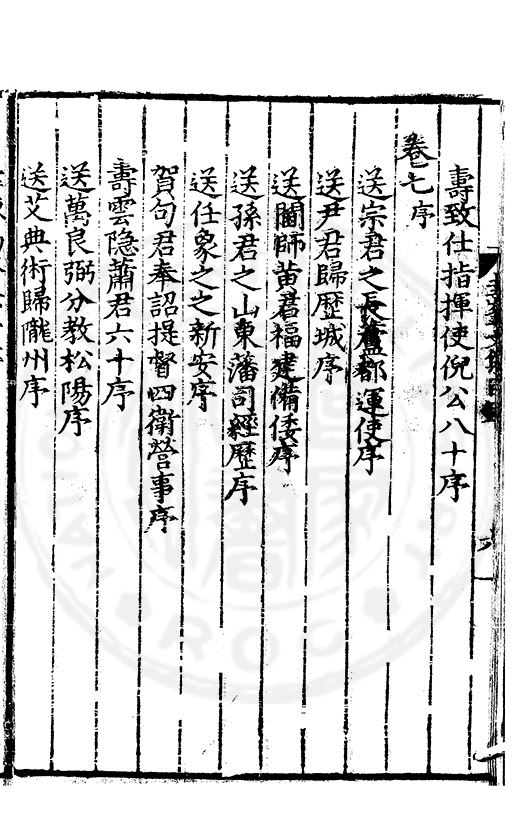 壽致仕指揮使倪公八十序
卷七序
送宗君之長蘆都運使序
送尹君歸歷城序
送閫師黃君福建備倭序
送孫君之山東藩司經歷序
送任象之之新安序
賀句君奉詔提督四衛營事序
壽雲隐蕭君六十序
送萬良弼分教松陽序
送艾典術歸隴州序